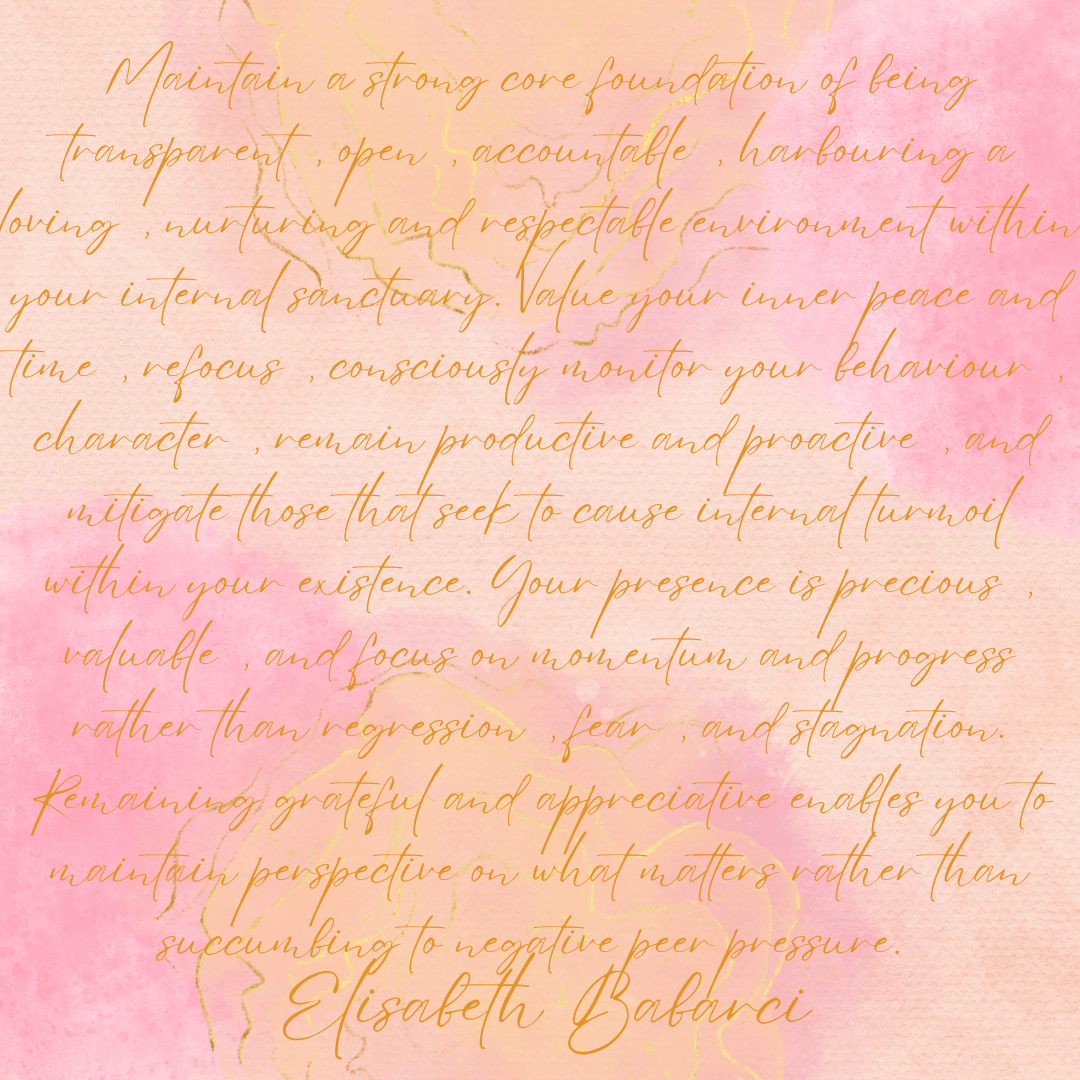 Maintain a strong core foundation of being
transparent , open , accountable , harbouring a
loving , nurturing and respectable environment within
your internal sanctuary. Value your inner peace and
time , refocus , consciously monitor your behaviour ,
character , remain productive and proactive , and
mitigate those that seek to cause internal turmoil
within your existence. Your presence is precious ,
valuable , and focus on momentum and progress
rather than regression , fear , and stagnation.
Remaining grateful and appreciative enables you to
maintain perspective on what matters rather than
succumbing to negative peer pressure.
Elisabeth Babarci